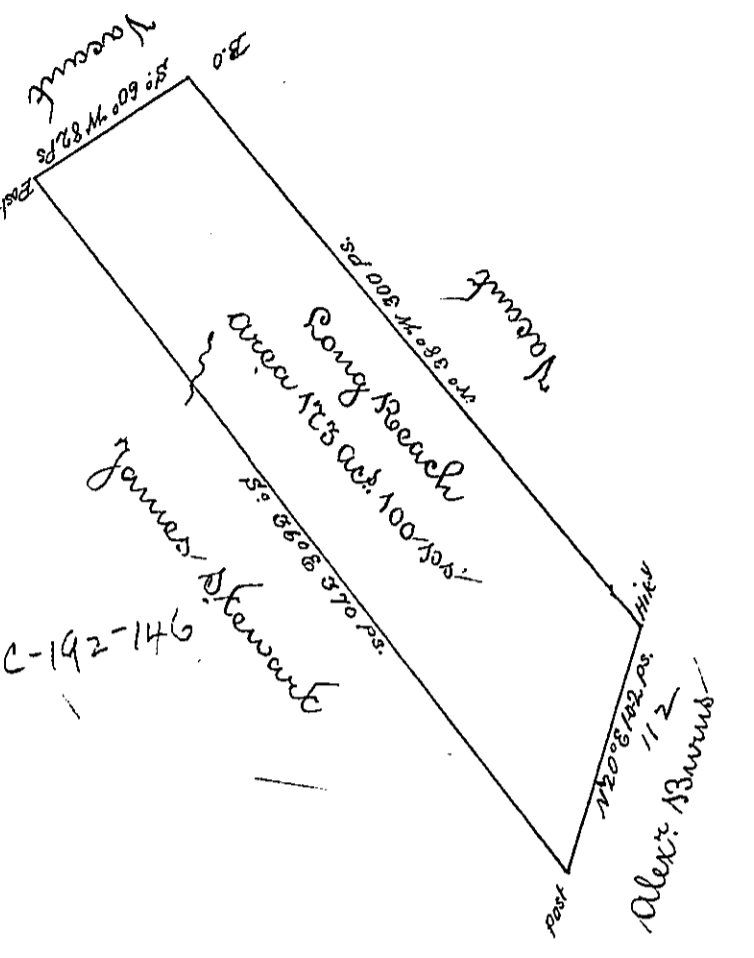 Vacant
So. 60° W 82 Ps
B.O
Post
No. 38° W 300 Ps.
Vacant
Long Reach
area 173 acs. 100 ps.
So. 36° E 370 Ps.
James Stewart
C-192-146
N 20° E 102 Ps.
112
Alexr. Burns
Post